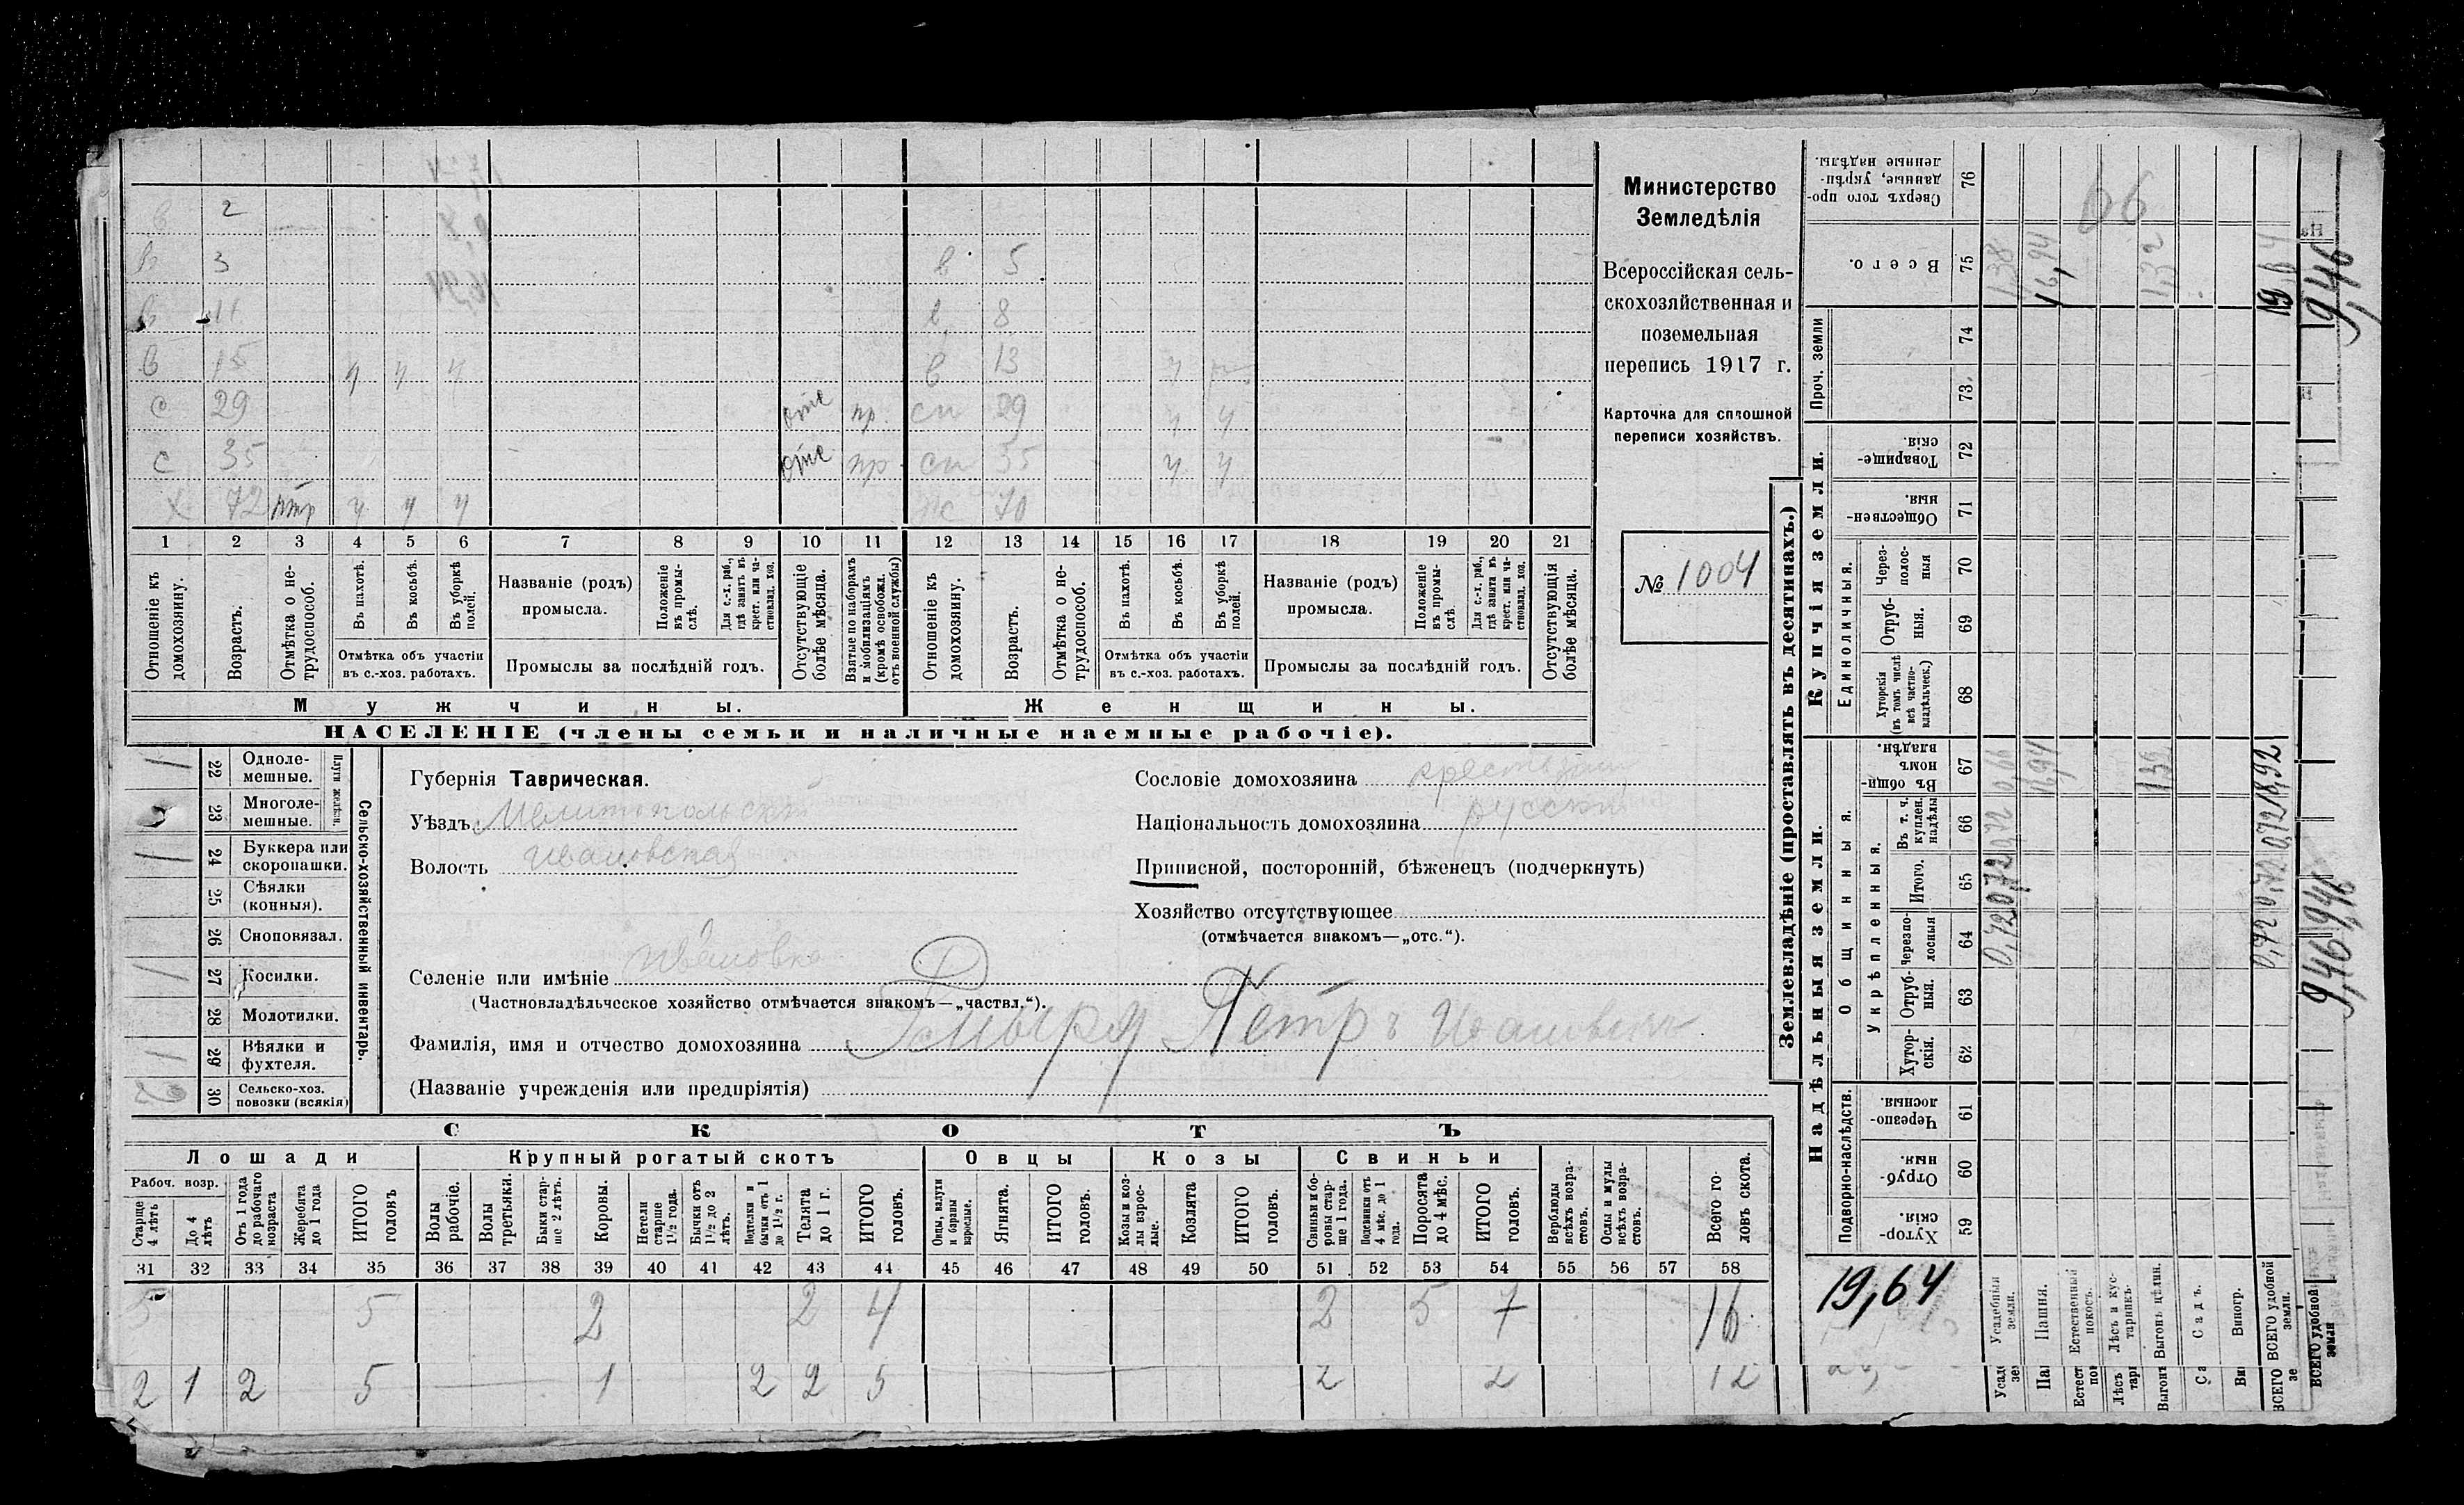 в 2
в 3 в 5
в 11 в 8
в 15 ч ч ч в 13 ч
с 29 отс пр. сн 29 ч ч
с 35 отс пр. сн 35 ч ч
х 72 ч ч ч ж 70
1 2 3 4 5 6 7 8 9 10 11 12 13 14 15 16 17 18 19 20 21
Отношеніе къ домохозяину.
Возрастъ.
Отмѣтка о не-трудоспособ.
Въ пахотѣ.
Въ косьбѣ.
Въ уборкѣ полей.
Отмѣтка объ участіи
въ с.-хоз. работахъ.
Названіе (родъ)
промысла.
Положеніе въ промы-слѣ.
Для с.-х. раб., гдѣ занятъ въ крест. или ча-стновлад. хоз.
Промыслы за послѣдній годъ.
Отсутствующіе болѣе мѣсяца.
Взятые по наборамъ и мобилизаціямъ (кромѣ освобожд. отъ военной службы)
Отношеніе къ домохозяину.
Возрастъ.
Отмѣтка о не-трудоспособ.
Въ пахотѣ.
Въ косьбѣ.
Въ уборкѣ полей.
Отмѣтка объ участіи
въ с.-хоз. работахъ.
Названіе (родъ)
промысла.
Положеніе въ промы-слѣ.
Для с.-х. раб., гдѣ занята въ крест. или ча-стновлад. хоз.
Промыслы за послѣдній годъ.
Отсутствующія болѣе мѣсяца.
Мужчины. Женщины.
НАСЕЛЕНІЕ (члены семьи и наличные наемные рабочіе).
Министерство
Земледѣлія
Всероссійская сель-
скохозяйственная и
поземельная
перепись 1917 г.
Карточка для сплошной
переписи хозяйствъ.
№ 1004
1 22 Одноле-мешные.
23 Многоле-мешные.
Плуги желѣзн.
1 24 Буккера или скоропашки.
25 Сѣялки (конныя).
26 Сноповязал.
1 27 Косилки.
28 Молотилки.
1 29 Вѣялки и фухтеля.
2 30 Сельско-хоз. повозки (всякія)
Сельско-хозяйственный инвентарь.
Губернія Таврическая.
Уѣздъ Мелитопольскій
Волость Ивановская
Селеніе или имѣніе Ивановка
(Частновладѣльческое хозяйство отмѣчается знакомъ—„частвл.“).
Фамилія, имя и отчество домохозяина Петръ Ивановичъ
(Названіе учрежденія или предпріятія)
Сословіе домохозяина крестьян
Національность домохозяина русскій
Приписной, посторонній, бѣженецъ (подчеркнуть)
Хозяйство отсутствующее
(отмѣчается знакомъ—„отс.“).
СКОТЪ
Лошади Крупный рогатый скотъ Овцы Козы Свиньи
Рабоч. возр.
Старше 4 лѣтъ
До 4 лѣтъ
Отъ 1 года до рабочаго возраста
Жеребята до 1 года
ИТОГО головъ
Волы рабочіе.
Волы третьяки.
Быки стар-ше 2 лѣтъ.
Коровы.
Нетели старше 1½ года.
Бычки отъ 1½ до 2 лѣтъ.
Подтелки и бычки отъ 1 до 1½ г.
Телята до 1 г.
ИТОГО головъ.
Овцы, валухи и бараны взрослые.
Ягнята.
ИТОГО головъ.
Козы и коз-лы взрос-лые.
Козлята
ИТОГО головъ.
Свиньи и бо-ровы стар-ше 1 года.
Подсвинки отъ 4 мѣс. до 1 года.
Поросята до 4 мѣс.
ИТОГО головъ.
Верблюды всѣхъ возра-стовъ.
Ослы и мулы всѣхъ возра-стовъ.
Всего го-ловъ скота.
31 32 33 34 35 36 37 38 39 40 41 42 43 44 45 46 47 48 49 50 51 52 53 54 55 56 57 58
5 5 2 2 4 2 5 7 16
2 1 2 5 1 2 2 5 2 2 12
Землевладѣніе (проставлять въ десятинахъ.)
Купчія земли.
Надѣльныя земли.
Сверхъ того про-данные, укрѣп-ленные надѣлы. 76
Всего. 75 1,38 16,94 1,32 19,64
66
Проч. земли 74
73
Товарище-скія. 72
Обществен-ныя. 71
Единоличныя.
Через-полос-ныя 70
Отруб-ныя. 69
Хуторскія (въ томъ числѣ всѣ частно-владѣльческ.) 68
Общинныя.
Въ общин-номъ владѣн. 67 0,66 16,94 1,32 18,92
Укрѣпленныя.
Въ т. ч. куплен. надѣлы 66 0,72 0,72
Итого. 65 0,72 0,72
Черезпо-лосныя 64 0,72 0,72
Отруб-ныя. 63
Хутор-скія. 62
Подворно-наслѣдств.
Черезпо-лосныя. 61
Отруб-ныя. 60
Хутор-скія. 59
19,64
Усадебныя земли.
Пашня.
Естественный покосъ.
Лѣсъ и кус-тарникъ.
Выгонъ цѣлин.
Садъ.
Виногр.
ВСЕГО удобной земли.
9,46
9,46 9,46
ВСЕГО удобной земли